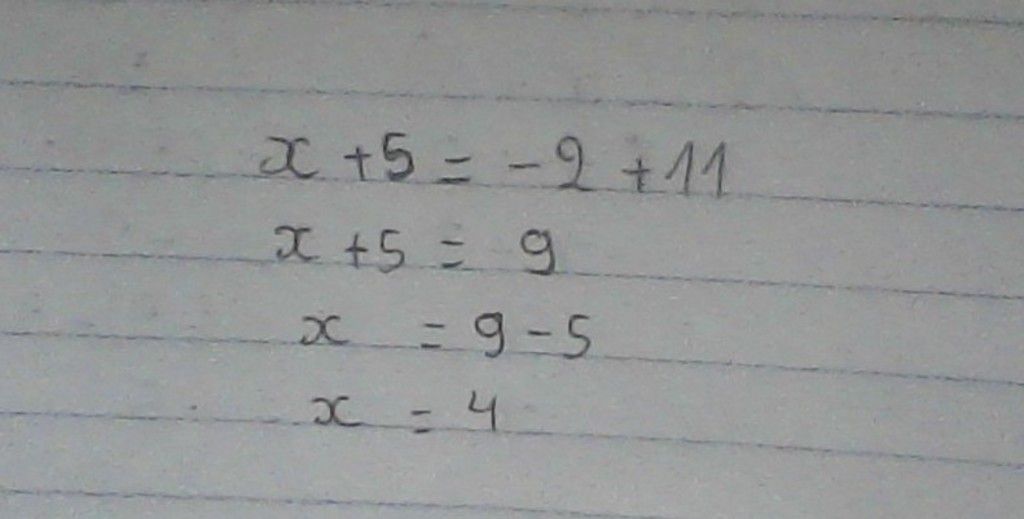 x + 5 = - 2 + 11
x + 5 = 9
x = 9 - 5
x = 4